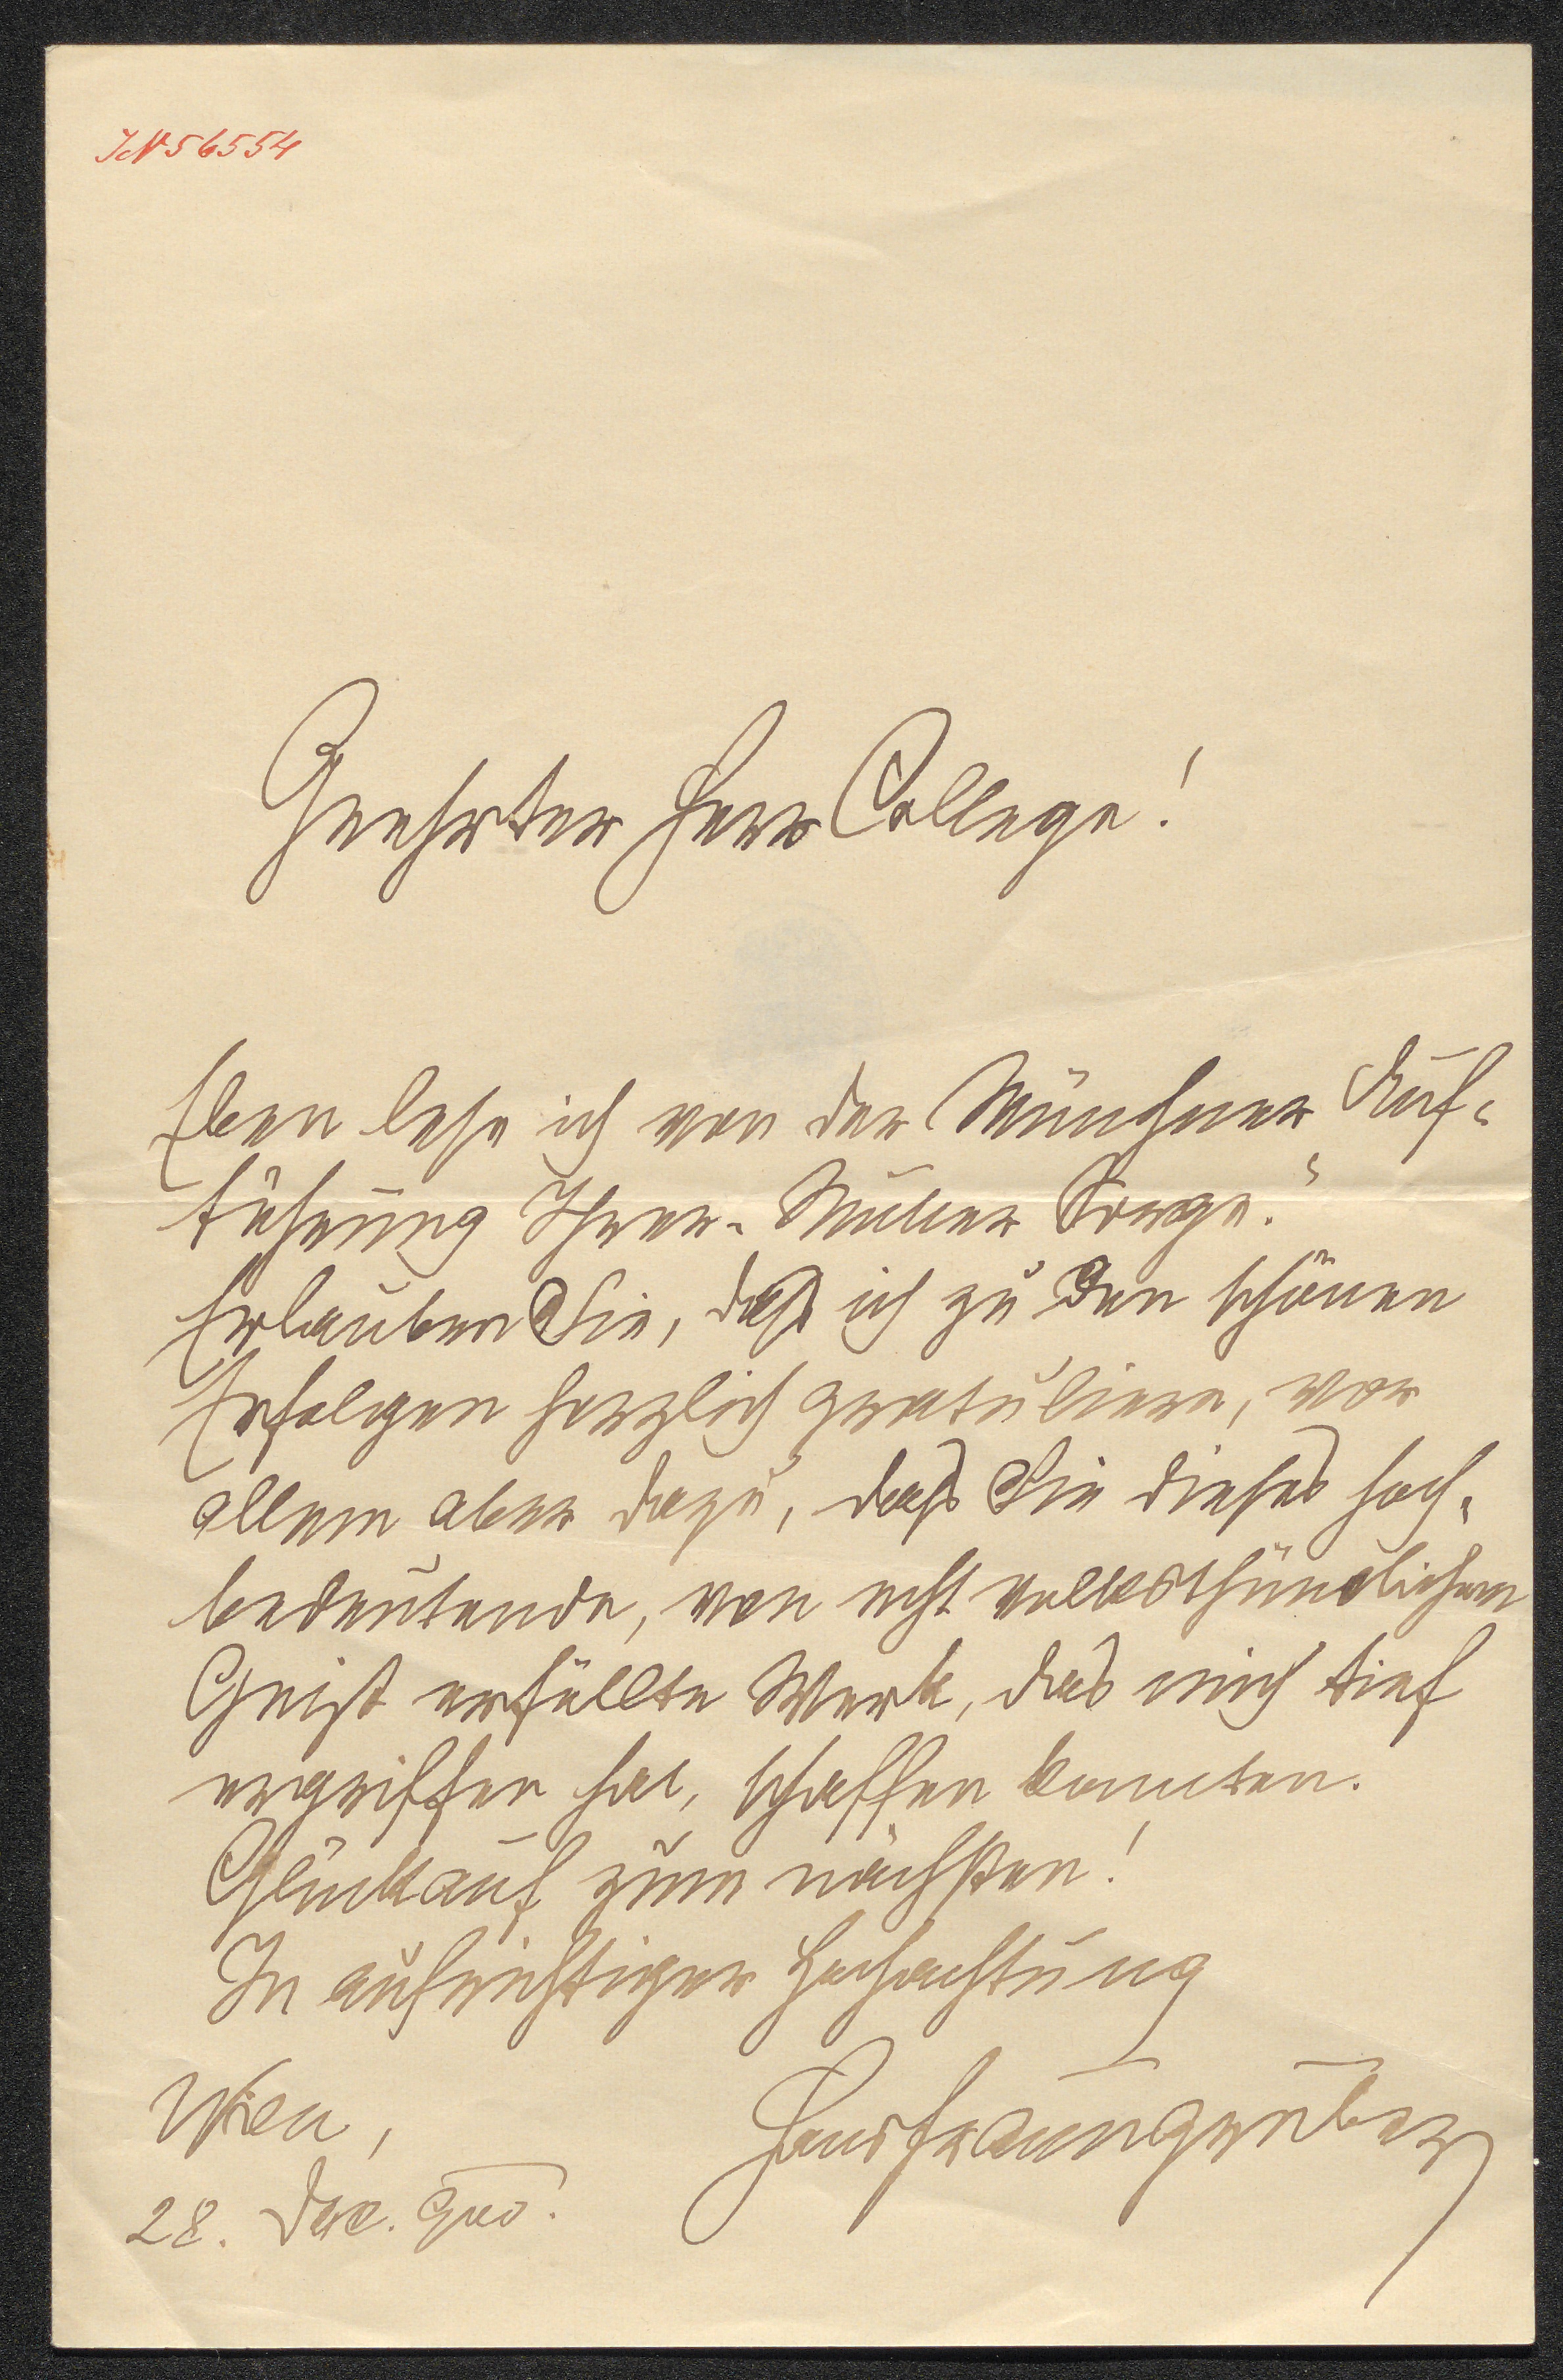 IN 56554
Geehrter Herr College!
Eben lese ich von der Münchner Auf-
führung Ihrer „Mutter Sorge“.
Erlauben Sie, daß ich zu den schönen
Erfolgen herzlich gratuliere, vor
allem aber dazu, daß Sie dieses hoch-
bedeutende, von echt volksthümlichem
Geist erfüllte Werk, das mich tief
ergriffen hat, schaffen konnten.
Glückauf zum nächsten!
In aufrichtiger Hochachtung
Wien,
Hans Fraungruber
28. Dec.